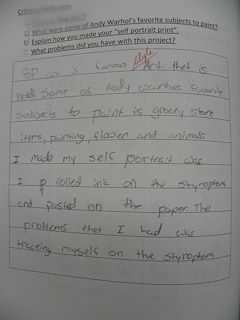 Critique/Reflection:
What were some of Andy Warhol's favorite subjects to paint?
Explain how you made your "self portrait print".
What problems did you have with this project?
style
POP is a famous Art that is
Some of Andy warhols favorite
Subjects to paint is grocery store
items, painting, flower and animals.
I made my self portrait was
I rolled ink on the styrofoam
and pusted on the paper. The
problems that I had was
traceing myself on the styrofoam